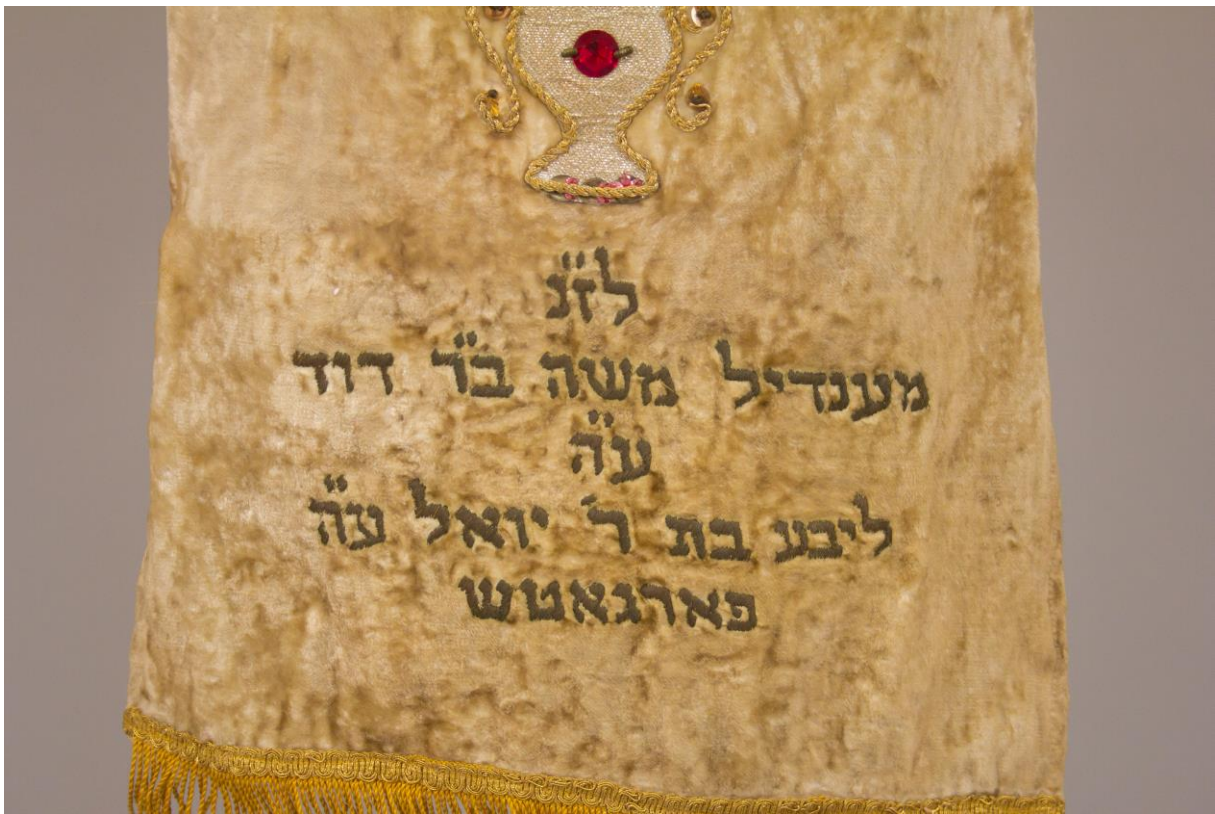 לז"נ
מענדיל משה ב"ר דוד
ע"ה
ליבע בת ר' יואל ע"ה
פארגאטש